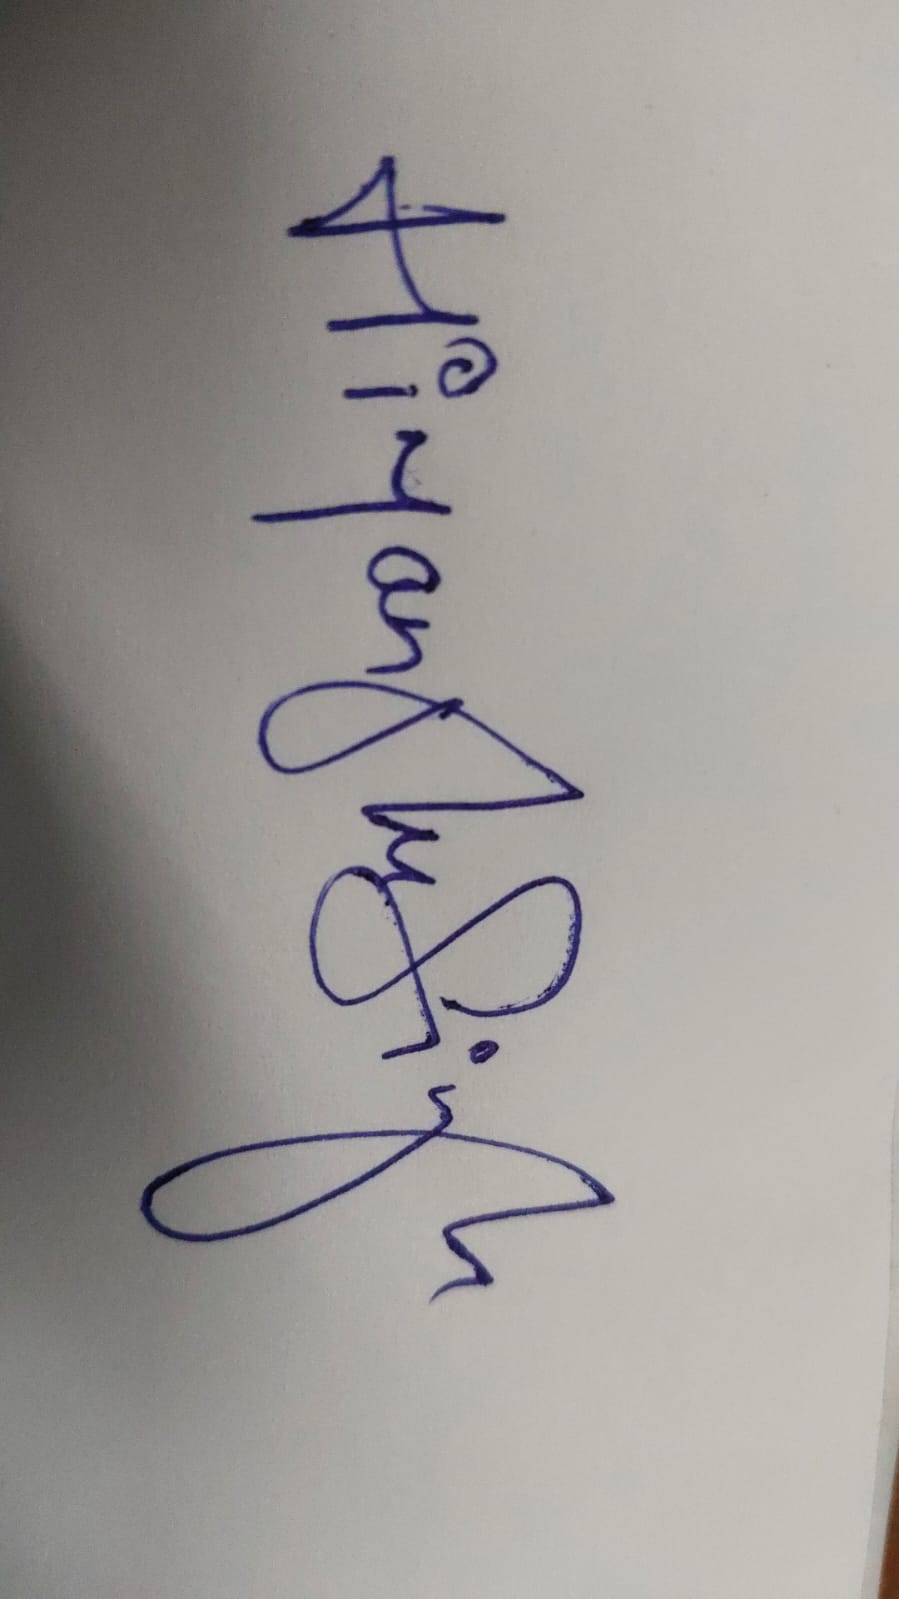 Hiyanshu Singh